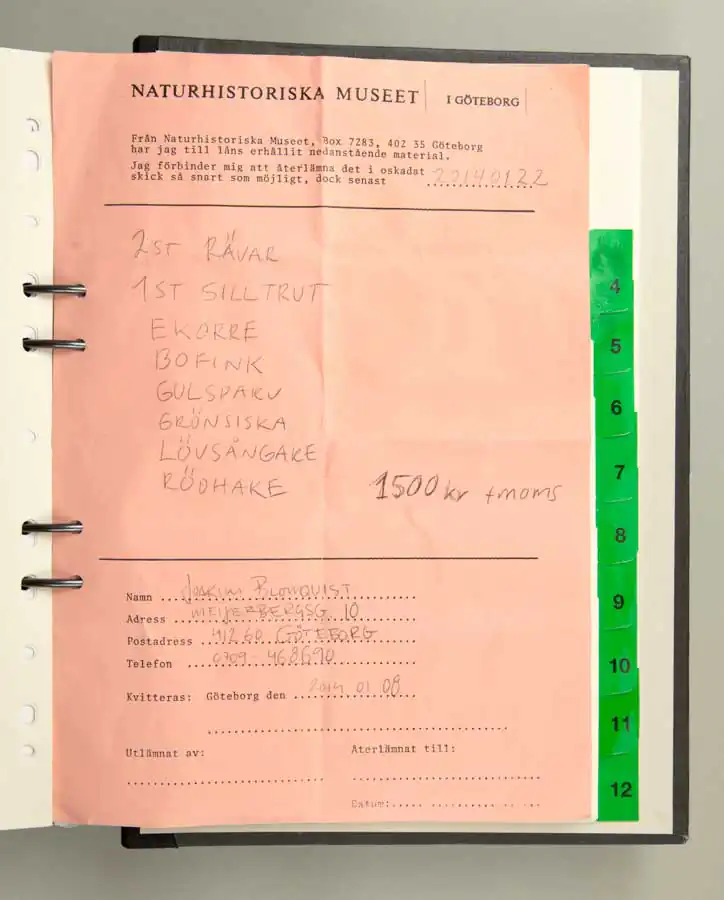 NATURHISTORISKA MUSEET I GÖTEBORG
Från Naturhistoriska Museet, Box 7283, 402 35 Göteborg
har jag till låns erhållit nedanstående material.
Jag förbinder mig att återlämna det i oskadat
skick så snart som möjligt, dock senast 20140122
2 ST RÄVAR
1 ST SILLTRUT
EKORRE
BOFINK
GULSPARV
GRÖNSISKA
LÖVSÅNGARE
RÖDHAKE
1500 kr + moms
Namn JOAKIM BLOMQUIST
Adress MEIJERBERGSG. 10
Postadress 412 60 GÖTEBORG
Telefon 0709-468690
Kvitteras: Göteborg den 2014 01 08
Utlämnat av: Återlämnat till:
Datum:
4
5
6
7
8
9
10
11
12